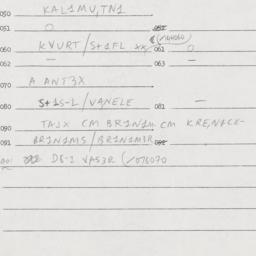 050 KAL1MV,TN1
051 O 052
060 KVVRT/S+1FL xx (/140060 061 O
062 — 063 —
070 A ANT3X
080 S+1S-L/VANELE 081 —
090 TA1X CM BR1N1M CM KRE,N4CE-
091 BR1N1MS/BR1N1M3R 092
D8-1 VAS3R (/078070